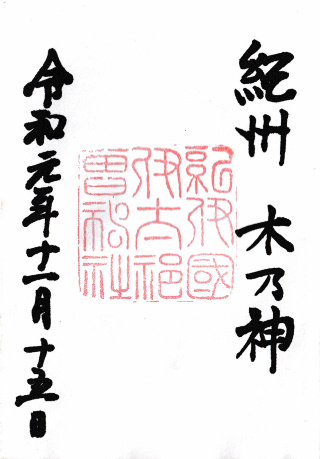 紀州 木乃神
紀伊國
伊太祁
曽神社
令和元年十一月十五日